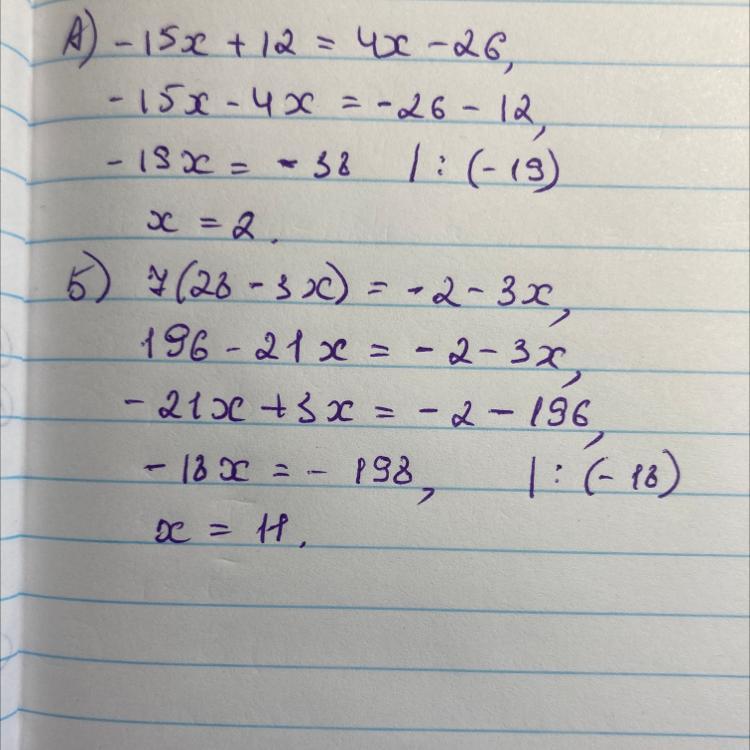 А) -15x + 12 = 4x - 26,
-15x - 4x = -26 - 12,
-19x = -38 | : (-19)
x = 2.
Б) 7(28 - 3x) = -2 - 3x,
196 - 21x = -2 - 3x,
-21x + 3x = -2 - 196,
-18x = - 198, | : (-18)
x = 11.